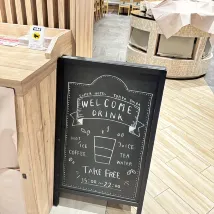 WELCOME
DRINK
HOT
ICE
COFFEE
JUICE
TEA
WATER
TAKE FREE